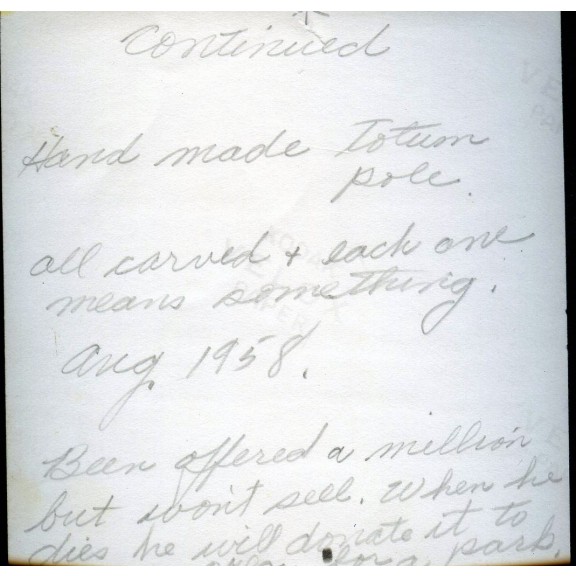 Continued
Hand made Totum
pole.
all carved + each one
means something.
Aug. 1958.
Been offered a million
but won't sell. When he
dies he will donate it to
for a park.
KODAK
VELOX
PAPER
VE
PA